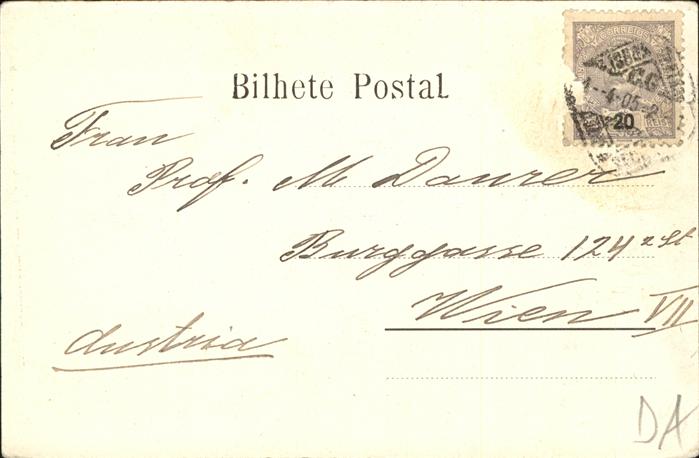 CORREIOS
LISBOA
4-05
20
Bilhete Postal
Frau
Prof. M. Daurer
Burggasse 124 2 St
Wien VII
Austria
DA